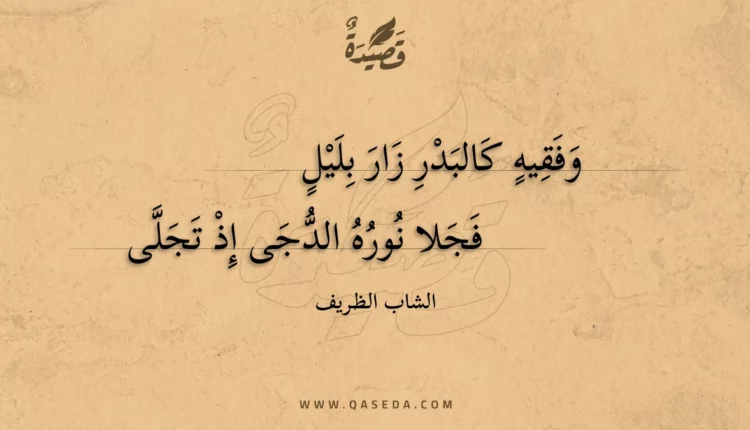 قَصِيْدَةٌ
وَفَقِيهٍ كَالبَدْرِ زَارَ بِلَيْلٍ
فَجَلا نُورُهُ الدُّجَى إِذْ تَجَلَّى
الشاب الظريف
WWW.QASEDA.COM